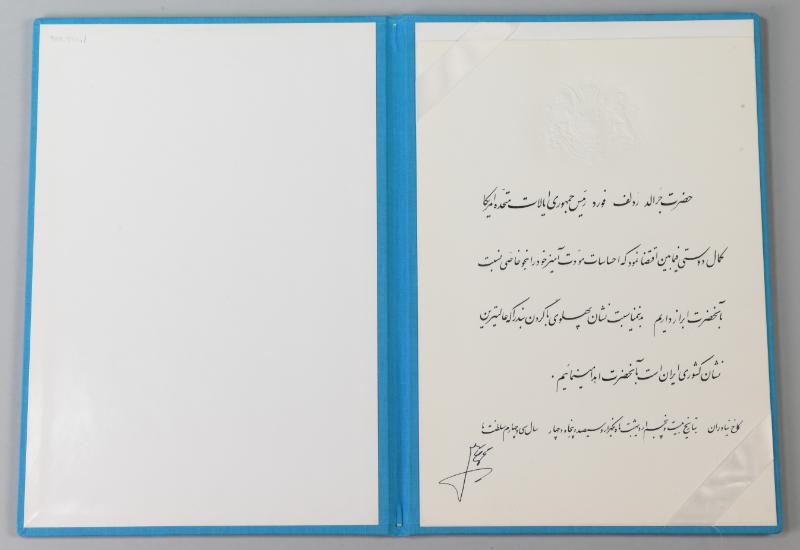 حضرت جرالد ردلف فورد رئیس جمهوری ایالات متحده امریکا
کمال دوستی فیمابین اقتضا نمود که احساسات مودت آمیز خود را بنحو خاصی نسبت
بآنحضرت ابراز داریم بدینمناسبت نشان پهلوی با گردن بند را که عالیترین
نشان کشوری ایران است بآنحضرت اهدا مینمائیم .
کاخ نیاوران بتاریخ بیست و پنجم اردیبهشت ماه یکهزار و سیصد و پنجاه و چهار سال سی و چهارم سلطنت ما